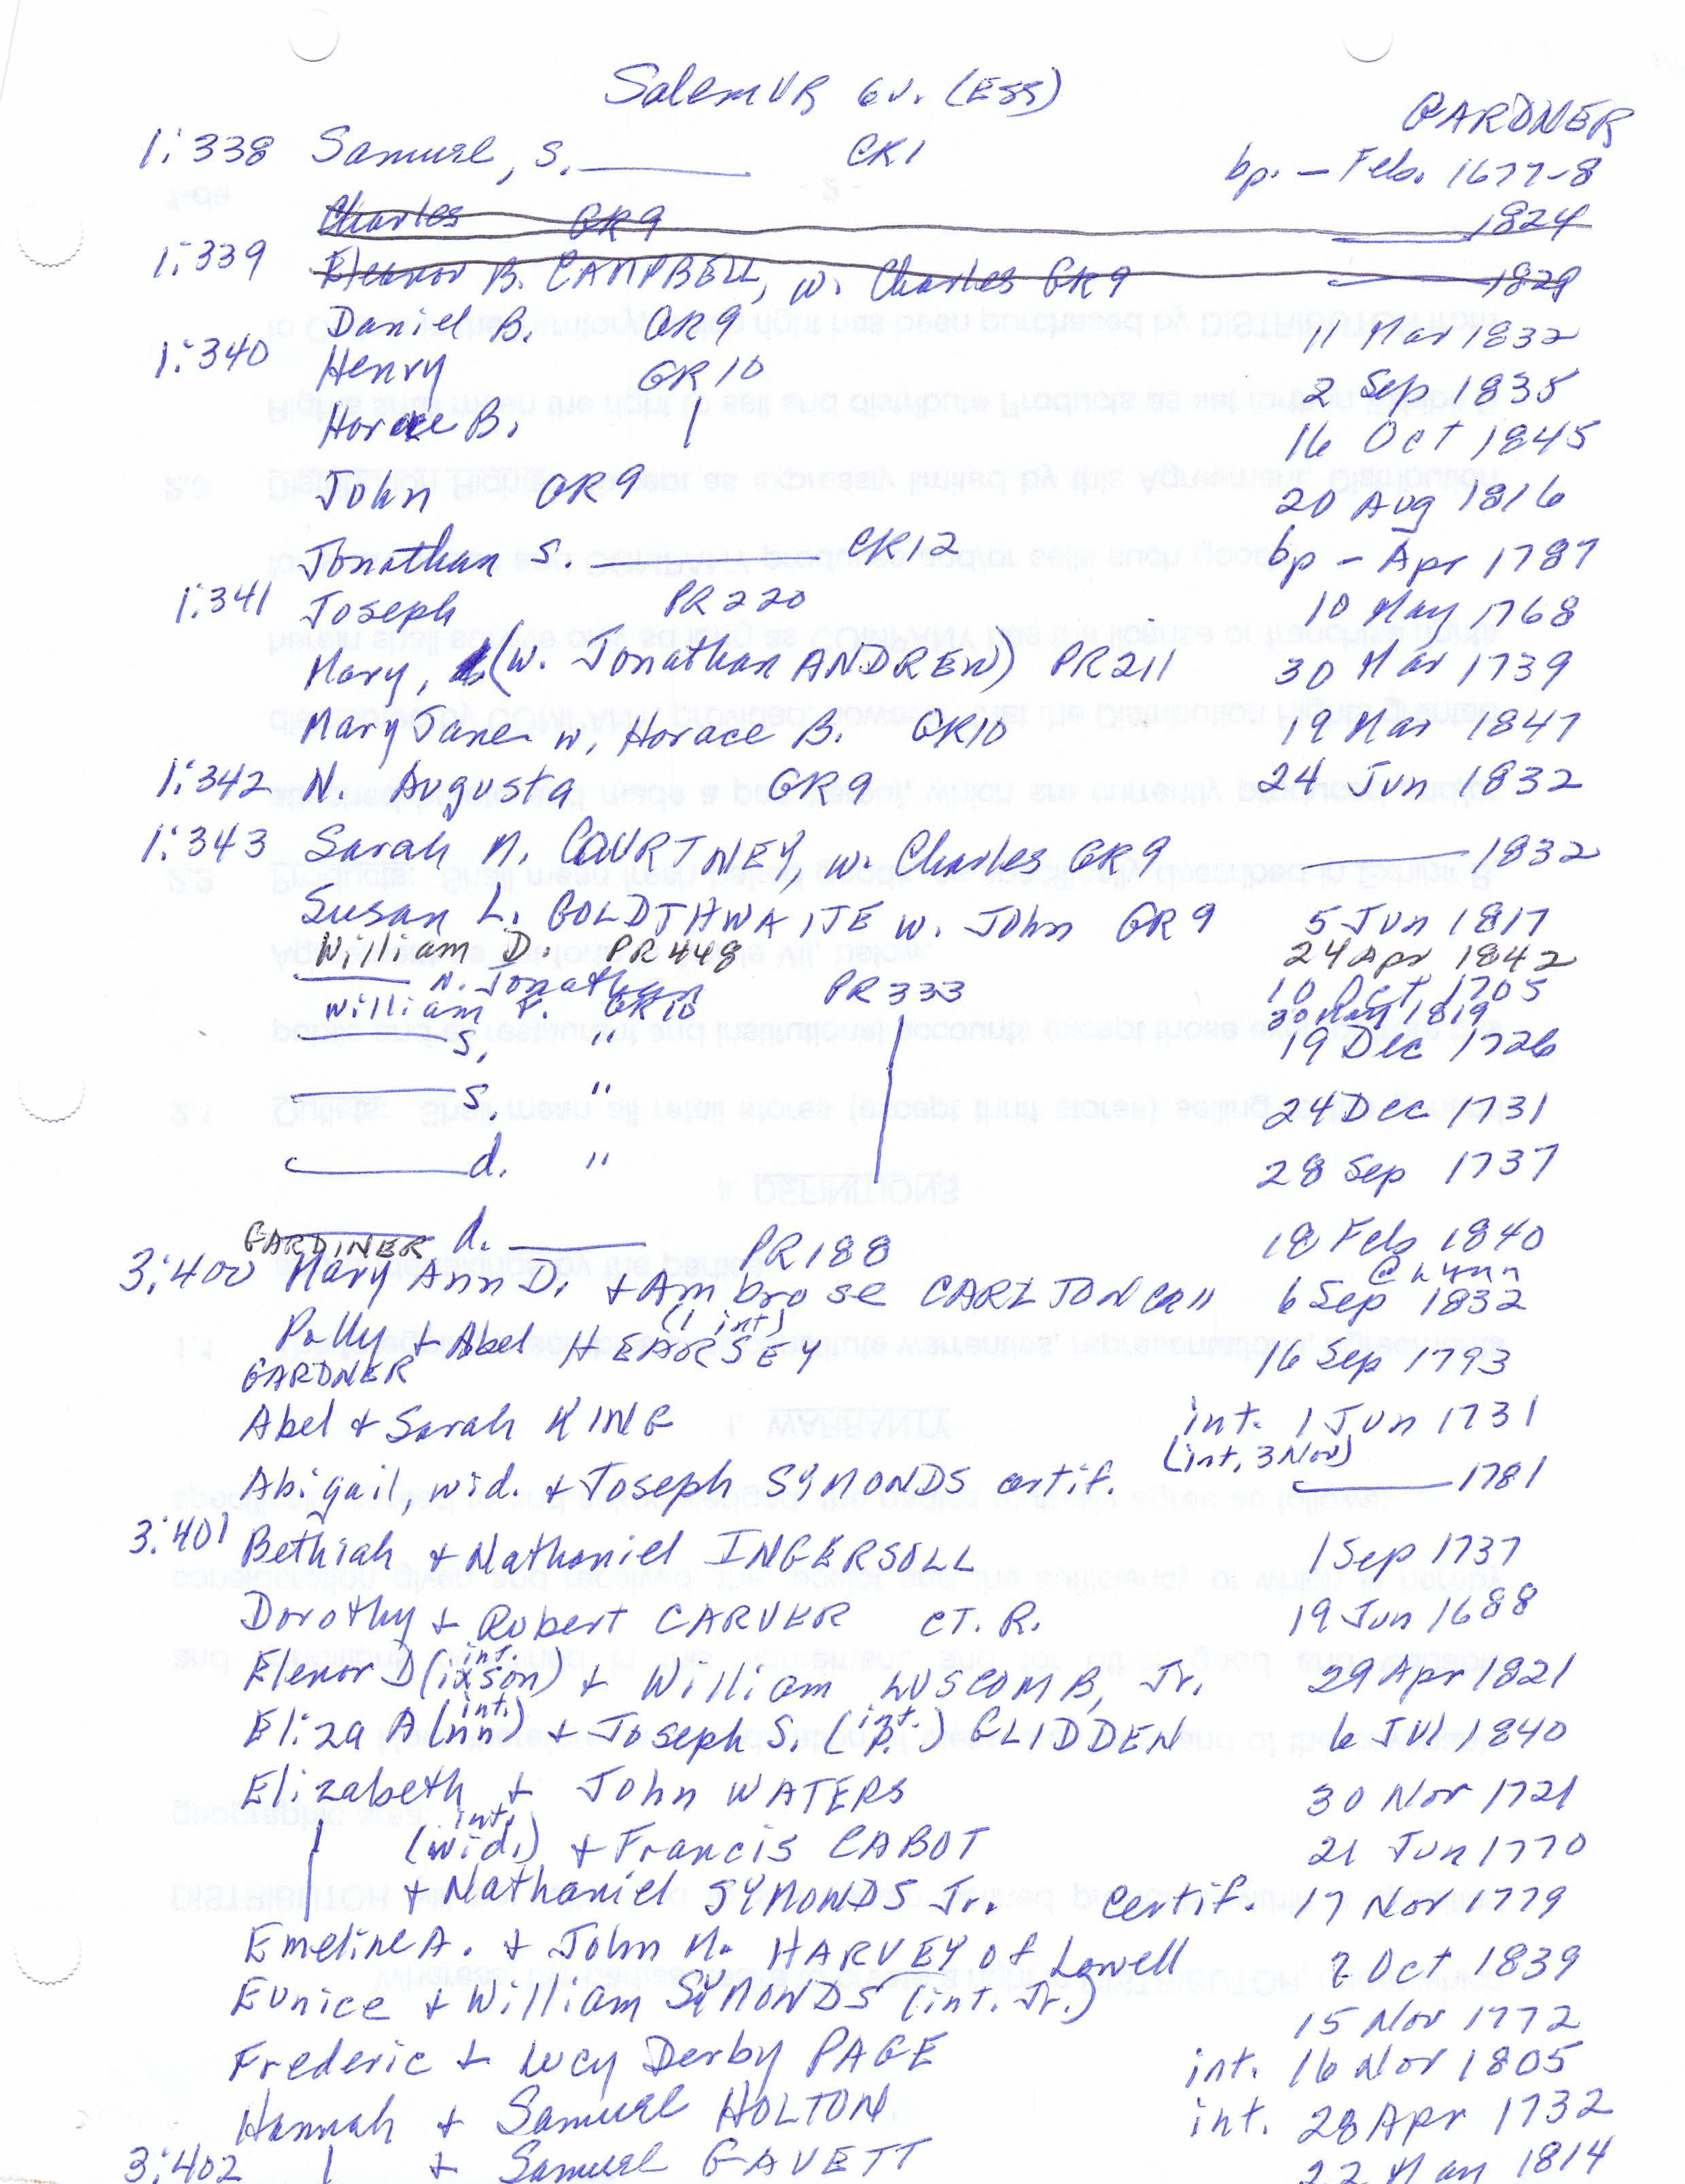 Salem VR 6v. (Ess)
GARDNER
1:338 Samuel, s. ____ CR1 bp. – Feb. 1677-8
Charles GR9 ____ 1824
1:339 Eleanor B. CAMPBELL, w. Charles GR9 ____ 1829
Daniel B. GR9 11 Mar 1832
1:340 Henry GR10 2 Sep 1835
Horace B. | 16 Oct 1845
John GR9 20 Aug 1816
Jonathan s. ____ CR12 bp – Apr 1787
1:341 Joseph PR220 10 May 1768
Mary, (w. Jonathan ANDREW) PR211 30 Mar 1739
Mary Jane w. Horace B. GR10 19 Mar 1847
1:342 N. Augusta GR9 24 Jun 1832
1:343 Sarah N. COURTNEY, w. Charles GR9 ____ 1832
Susan L. GOLDTHWAITE w. John GR9 5 Jun 1817
William D. PR448 24 Apr 1842
____ N. Jonathan PR333 10 Oct 1705
William F. GR10 30 May 1819
____ s. " 19 Dec 1726
____ s. " 24 Dec 1731
____ d. " 28 Sep 1737
____ d. ____ PR188 18 Feb 1840
GARDINER @ Lynn
3:400 Mary Ann D. + Ambrose CARLTON CR11 6 Sep 1832
Polly + Abel HEARSEY (1 int) 16 Sep 1793
GARDNER
Abel + Sarah KING int. 1 Jun 1731
Abigail, wid. + Joseph SYMONDS certif. (int. 3 Nov) ____ 1781
3:401 Bethiah + Nathaniel INGERSOLL 1 Sep 1737
Dorothy + Robert CARVER CT. R. 19 Jun 1688
Elenor D(ixson) int. + William LUSCOMB, Jr. 29 Apr 1821
Eliza A(nn) int. + Joseph S. (P. int.) GLIDDEN 6 Jul 1840
Elizabeth + John WATERS 30 Nov 1721
| (wid.) int. + Francis CABOT 21 Jun 1770
| + Nathaniel SYMONDS Jr. Certif. 17 Nov 1779
Emeline A. + John M. HARVEY of Lowell 2 Oct 1839
Eunice + William SYMONDS (int. Jr.) 15 Nov 1772
Frederic + Lucy Derby PAGE int. 16 Nov 1805
Hannah + Samuel HOLTON int. 28 Apr 1732
3:402 | + Samuel GAVETT 22 May 1814